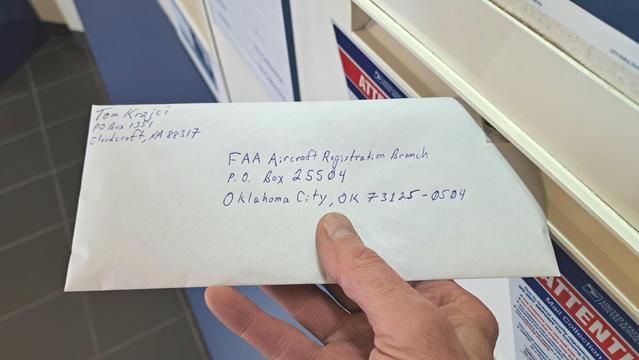 Tom Krajci
PO Box 1351
Cloudcroft, NM 88317
FAA Aircraft Registration Branch
P.O. Box 25504
Oklahoma City, OK 73125-0504
ATTE
ATTENT
Mail Collection